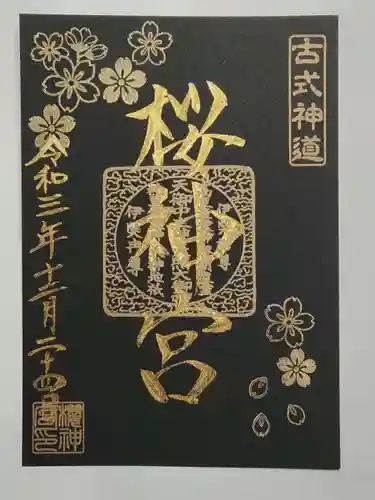 古式神道
桜神宮
令和三年十二月二十四日
櫻神宮印